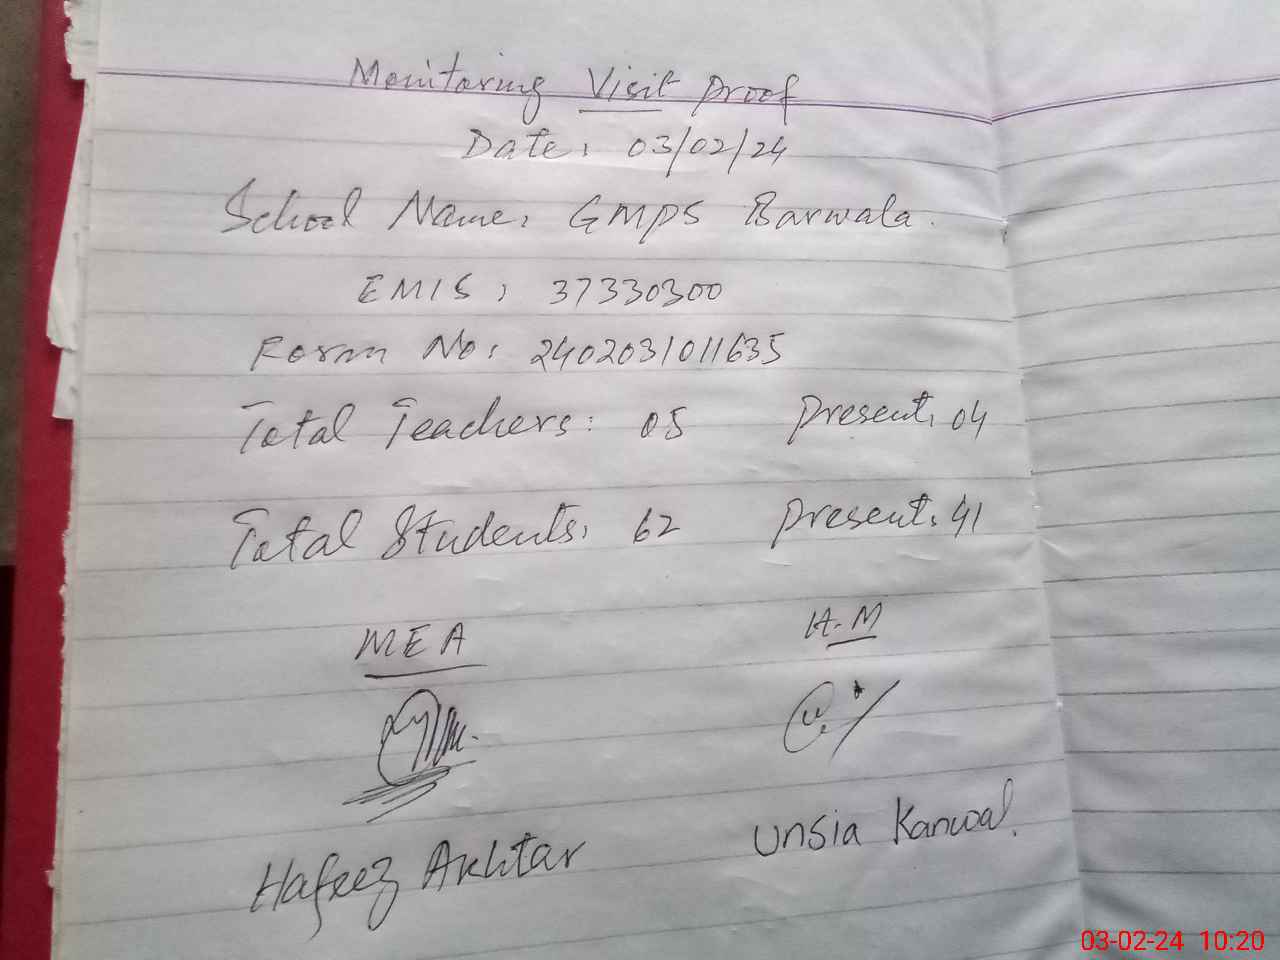 Monitoring Visit Proof
Date: 03/02/24
School Name: GMPS Barwala.
EMIS: 37330300
Form No: 2402031011635
Total Teachers: 05 Present: 04
Total Students: 62 Present: 41
MEA H.M
Hafeez Akhtar Unsia Kanwal.
03-02-24 10:20